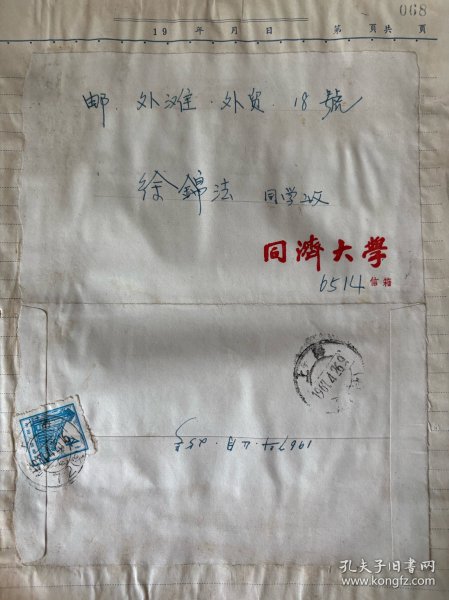 068
19 年 月 日 第 页共 页
邮.外滩.外贸.18號
徐錦法 同学收
同濟大學
6514 信箱
1967.4.26.9
1967年.4月.25号
孔夫子旧书网
www.kongfz.com